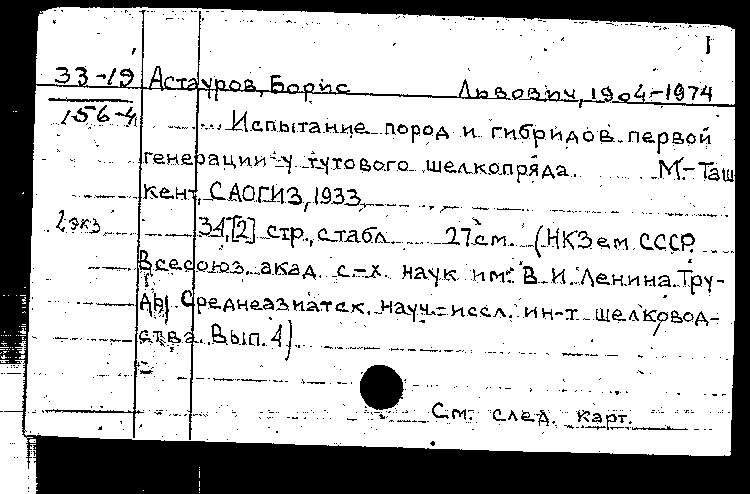 I
33-19 Астауров, Борис Львович, 1904-1974
156-4 ... Испытание пород и гибридов первой
генерации у тутового шелкопряда. М.-Таш
кент, САОГИЗ, 1933
2 экз 34,[2] стр., с табл. 27см. (НКЗем СССР.
Всесоюз. акад. с-х. наук им. В.И. Ленина. Тру-
ды Среднеазиатск. науч.-иссл. ин-т. шелковод-
ства. Вып. 4)
См. след. карт.